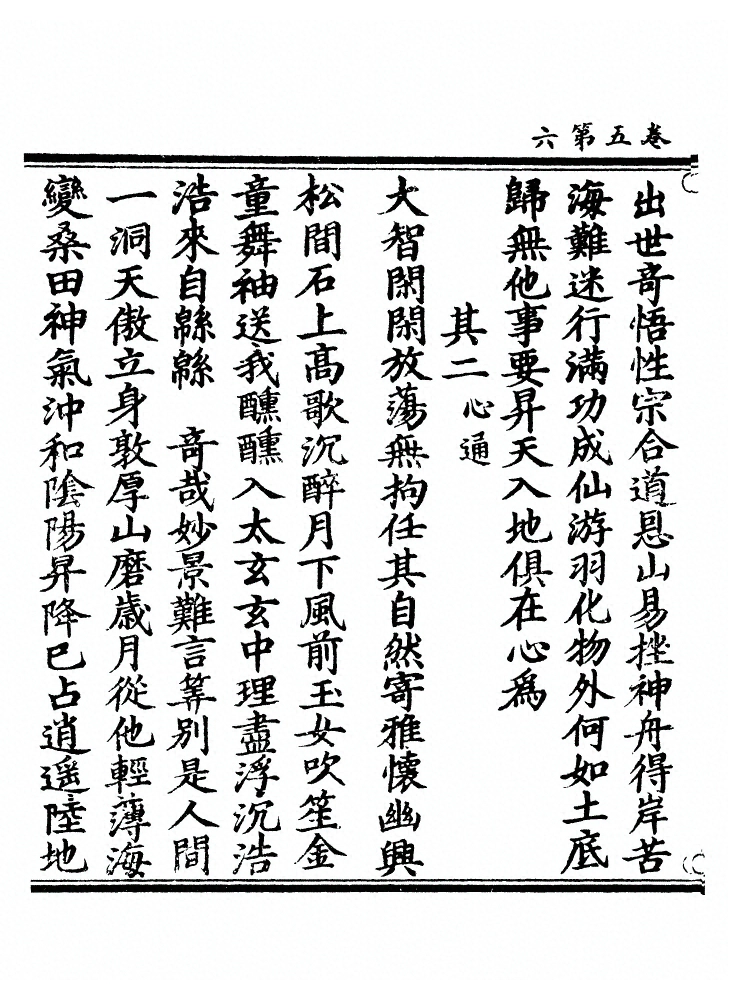 卷五第六
出世奇悟性宗合道恳山易挫神舟得岸苦
海難迷行滿功成仙游羽化物外何如土底
歸無他事要昇天入地俱在心爲
其二心通
大智閑閑放蕩無拘任其自然寄雅懷幽興
松間石上高歌沉醉月下風前玉女吹笙金
童舞袖送我醺醺入太玄玄中理盡浮沉浩
浩來自緜緜　奇哉妙景難言筭別是人間
一洞天傲立身敦厚山磨歲月從他輕薄海
變桑田神氣沖和陰陽昇降已占逍遥陸地